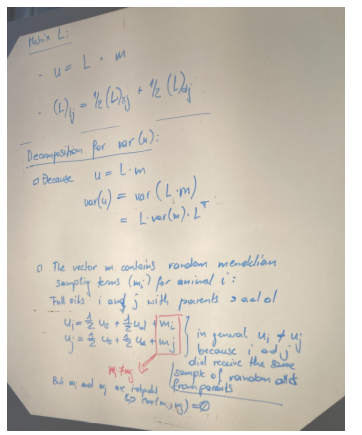 Matrix L:
- u = L · m
- (L)ij = 1/2 (L)sj + 1/2 (L)dj
Decomposition for var(u):
o Because u = L·m
var(u) = var (L·m)
= L·var(m)·L^T
o The vector m contains random mendelian
sampling terms (mi) for animal i:
Full sibs i and j with parents s and d
ui = 1/2 us + 1/2 ud + mi
uj = 1/2 us + 1/2 ud + mj
in general ui ≠ uj
because i and j
did receive the same
sample of random
from parents
mi ≠ mj
But mi and mj are